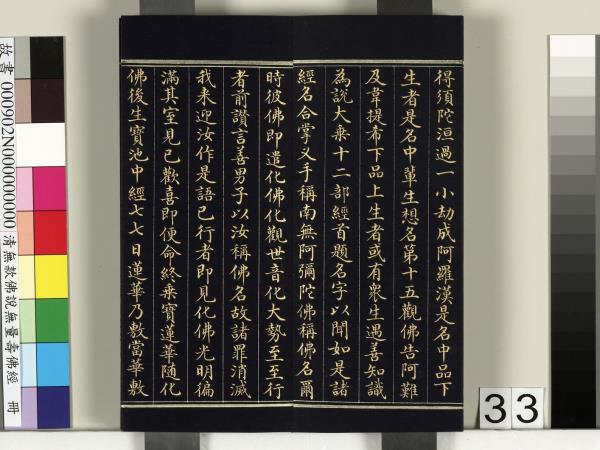 得須陀洹過一小劫成阿羅漢是名中品下
生者是名中輩生想名第十五觀佛告阿難
及韋提希下品上生者或有眾生遇善知識
為說大乗十二部經首題名字以聞如是諸
經名合掌叉手稱南無阿彌陀佛稱佛名爾
時彼佛即遣化佛化觀世音化大勢至至行
者前讚言善男子以汝稱佛名故諸罪消滅
我来迎汝作是語已行者即見化佛光明徧
滿其室見已歡喜即便命終乘寶蓮華隨化
佛後生寶池中經七七日蓮華乃敷當華敷
故書 000902N000000000 清無款佛說無量壽佛經 冊
33